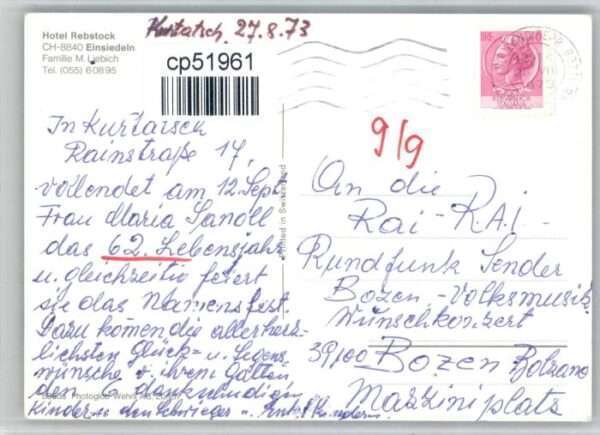 Hotel Rebstock
CH-8840 Einsiedeln
Familie M. Liebich
Tel. (055) 6 08 95
Kurtatsch, 27.8.73
cp51961
9/9
In Kurtatsch
Rainstraße 17,
vollendet am 12. Sept.
Frau Maria Sanoll
das 62. Lebensjahr
u. gleichzeitig feiert
sie das Namensfest.
Dazu komen die allerherz-
lichsten Glück- u. Segens
wünsche v. ihrem Gatten
den 6 dankschudigen
Kindern den Schwieger u. Enkelkindern.
Printed in Switzerland
An die
Rai-R.A.I-
Rundfunk Sender
Bozen-Volksmusik
Wunschkonzert
39100 Bozen Bolzano
Mazziniplatz